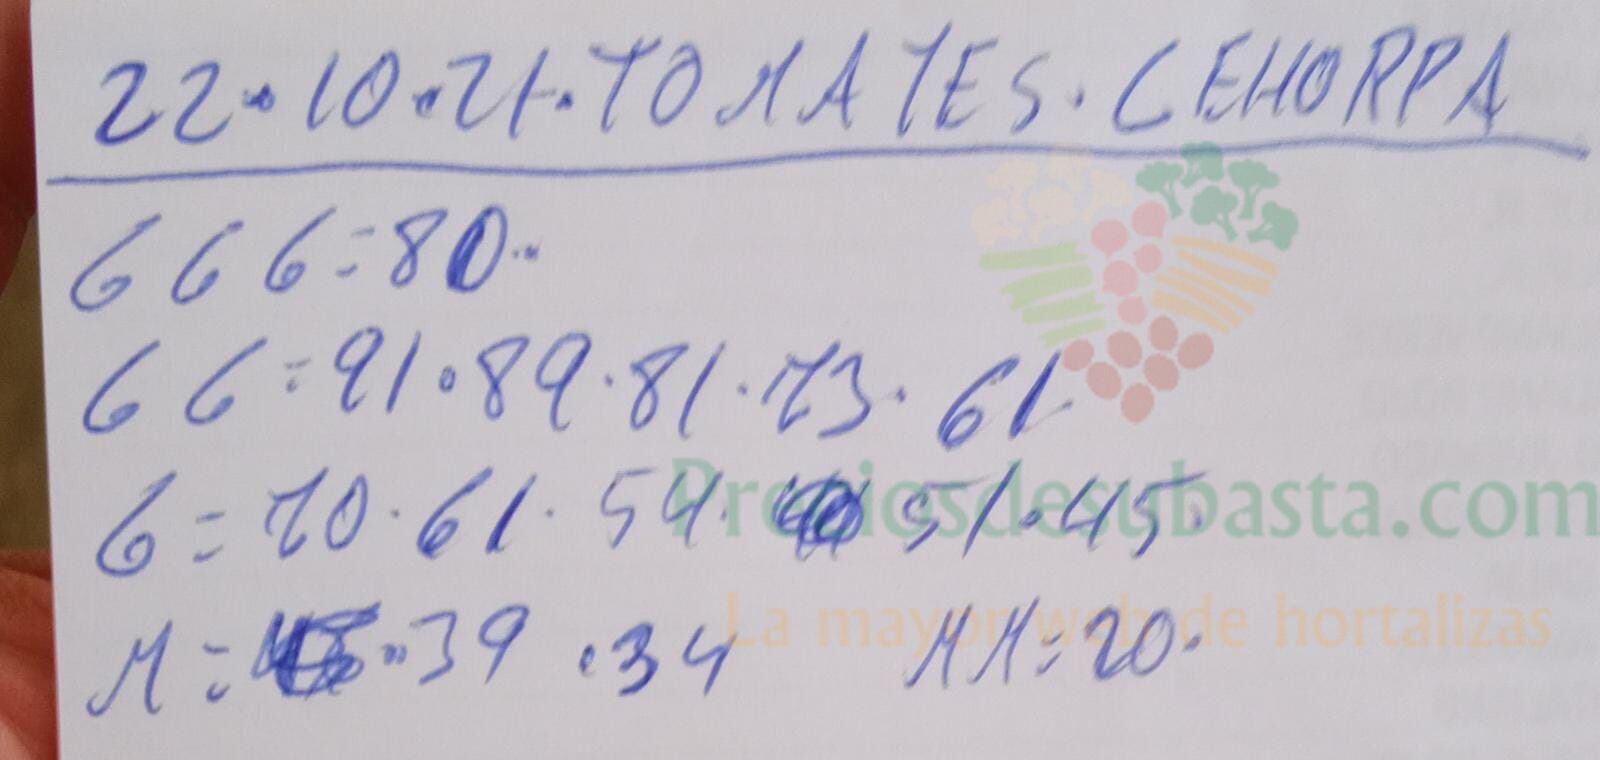 22.10.21.TOMATES.CEHORPA
GGG=80.
GG=91.89.81.73.61.
G=70.61.54. 51.45.
Preciosdesubasta.com
M= .39.34 MM=20.
La mayor web de hortalizas